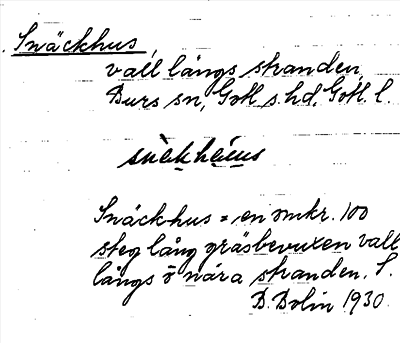 Snäckhus,
vall längs stranden,
Burs sn, Gotl. s. hd, Gotl. l.
snèkhéus
Snäckhus = en omkr. 100
steg lång gräsbevuxen vall
längs ö nära stranden. S.
B. Bolin 1930.